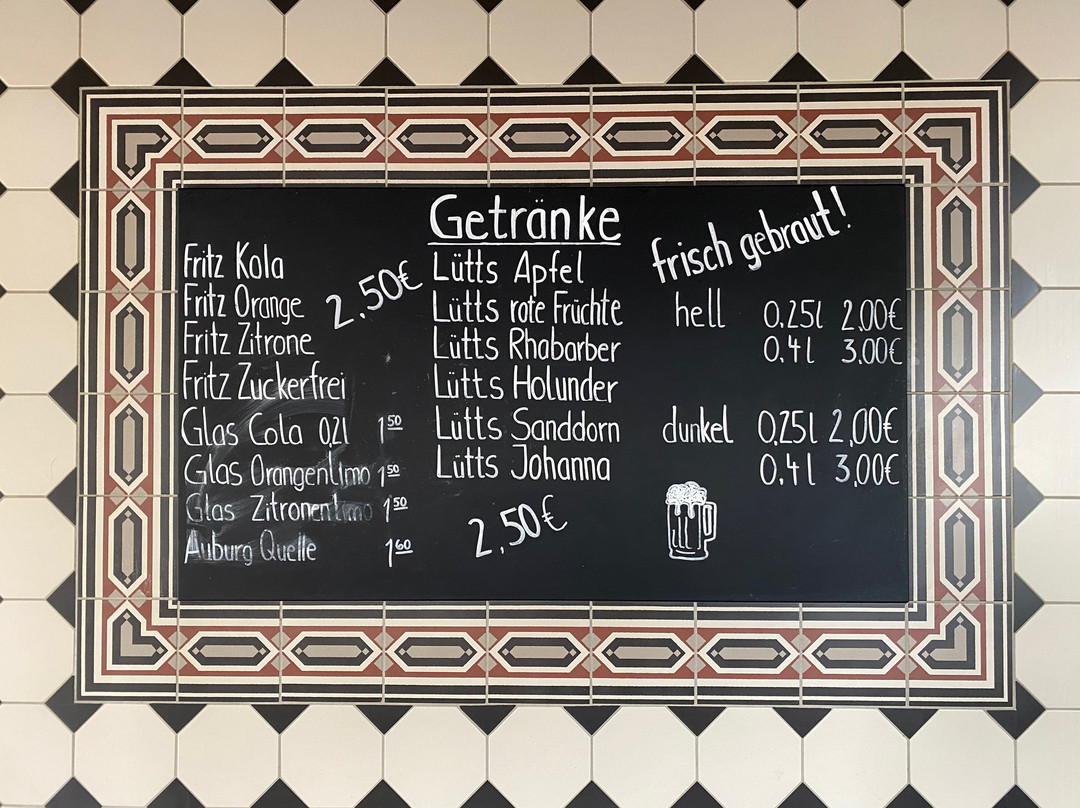 Getränke
Fritz Kola
Fritz Orange
Fritz Zitrone
Fritz Zuckerfrei
2,50€
Glas Cola 0,2l 1 50
Glas Orangenlimo 1 50
Glas Zitronenlimo 1 50
Auburg Quelle 1 60
Lütts Apfel
Lütts rote Früchte
Lütts Rhabarber
Lütts Holunder
Lütts Sanddorn
Lütts Johanna
2,50€
frisch gebraut!
hell 0,25l 2,00€
0,4l 3,00€
dunkel 0,25l 2,00€
0,4l 3,00€